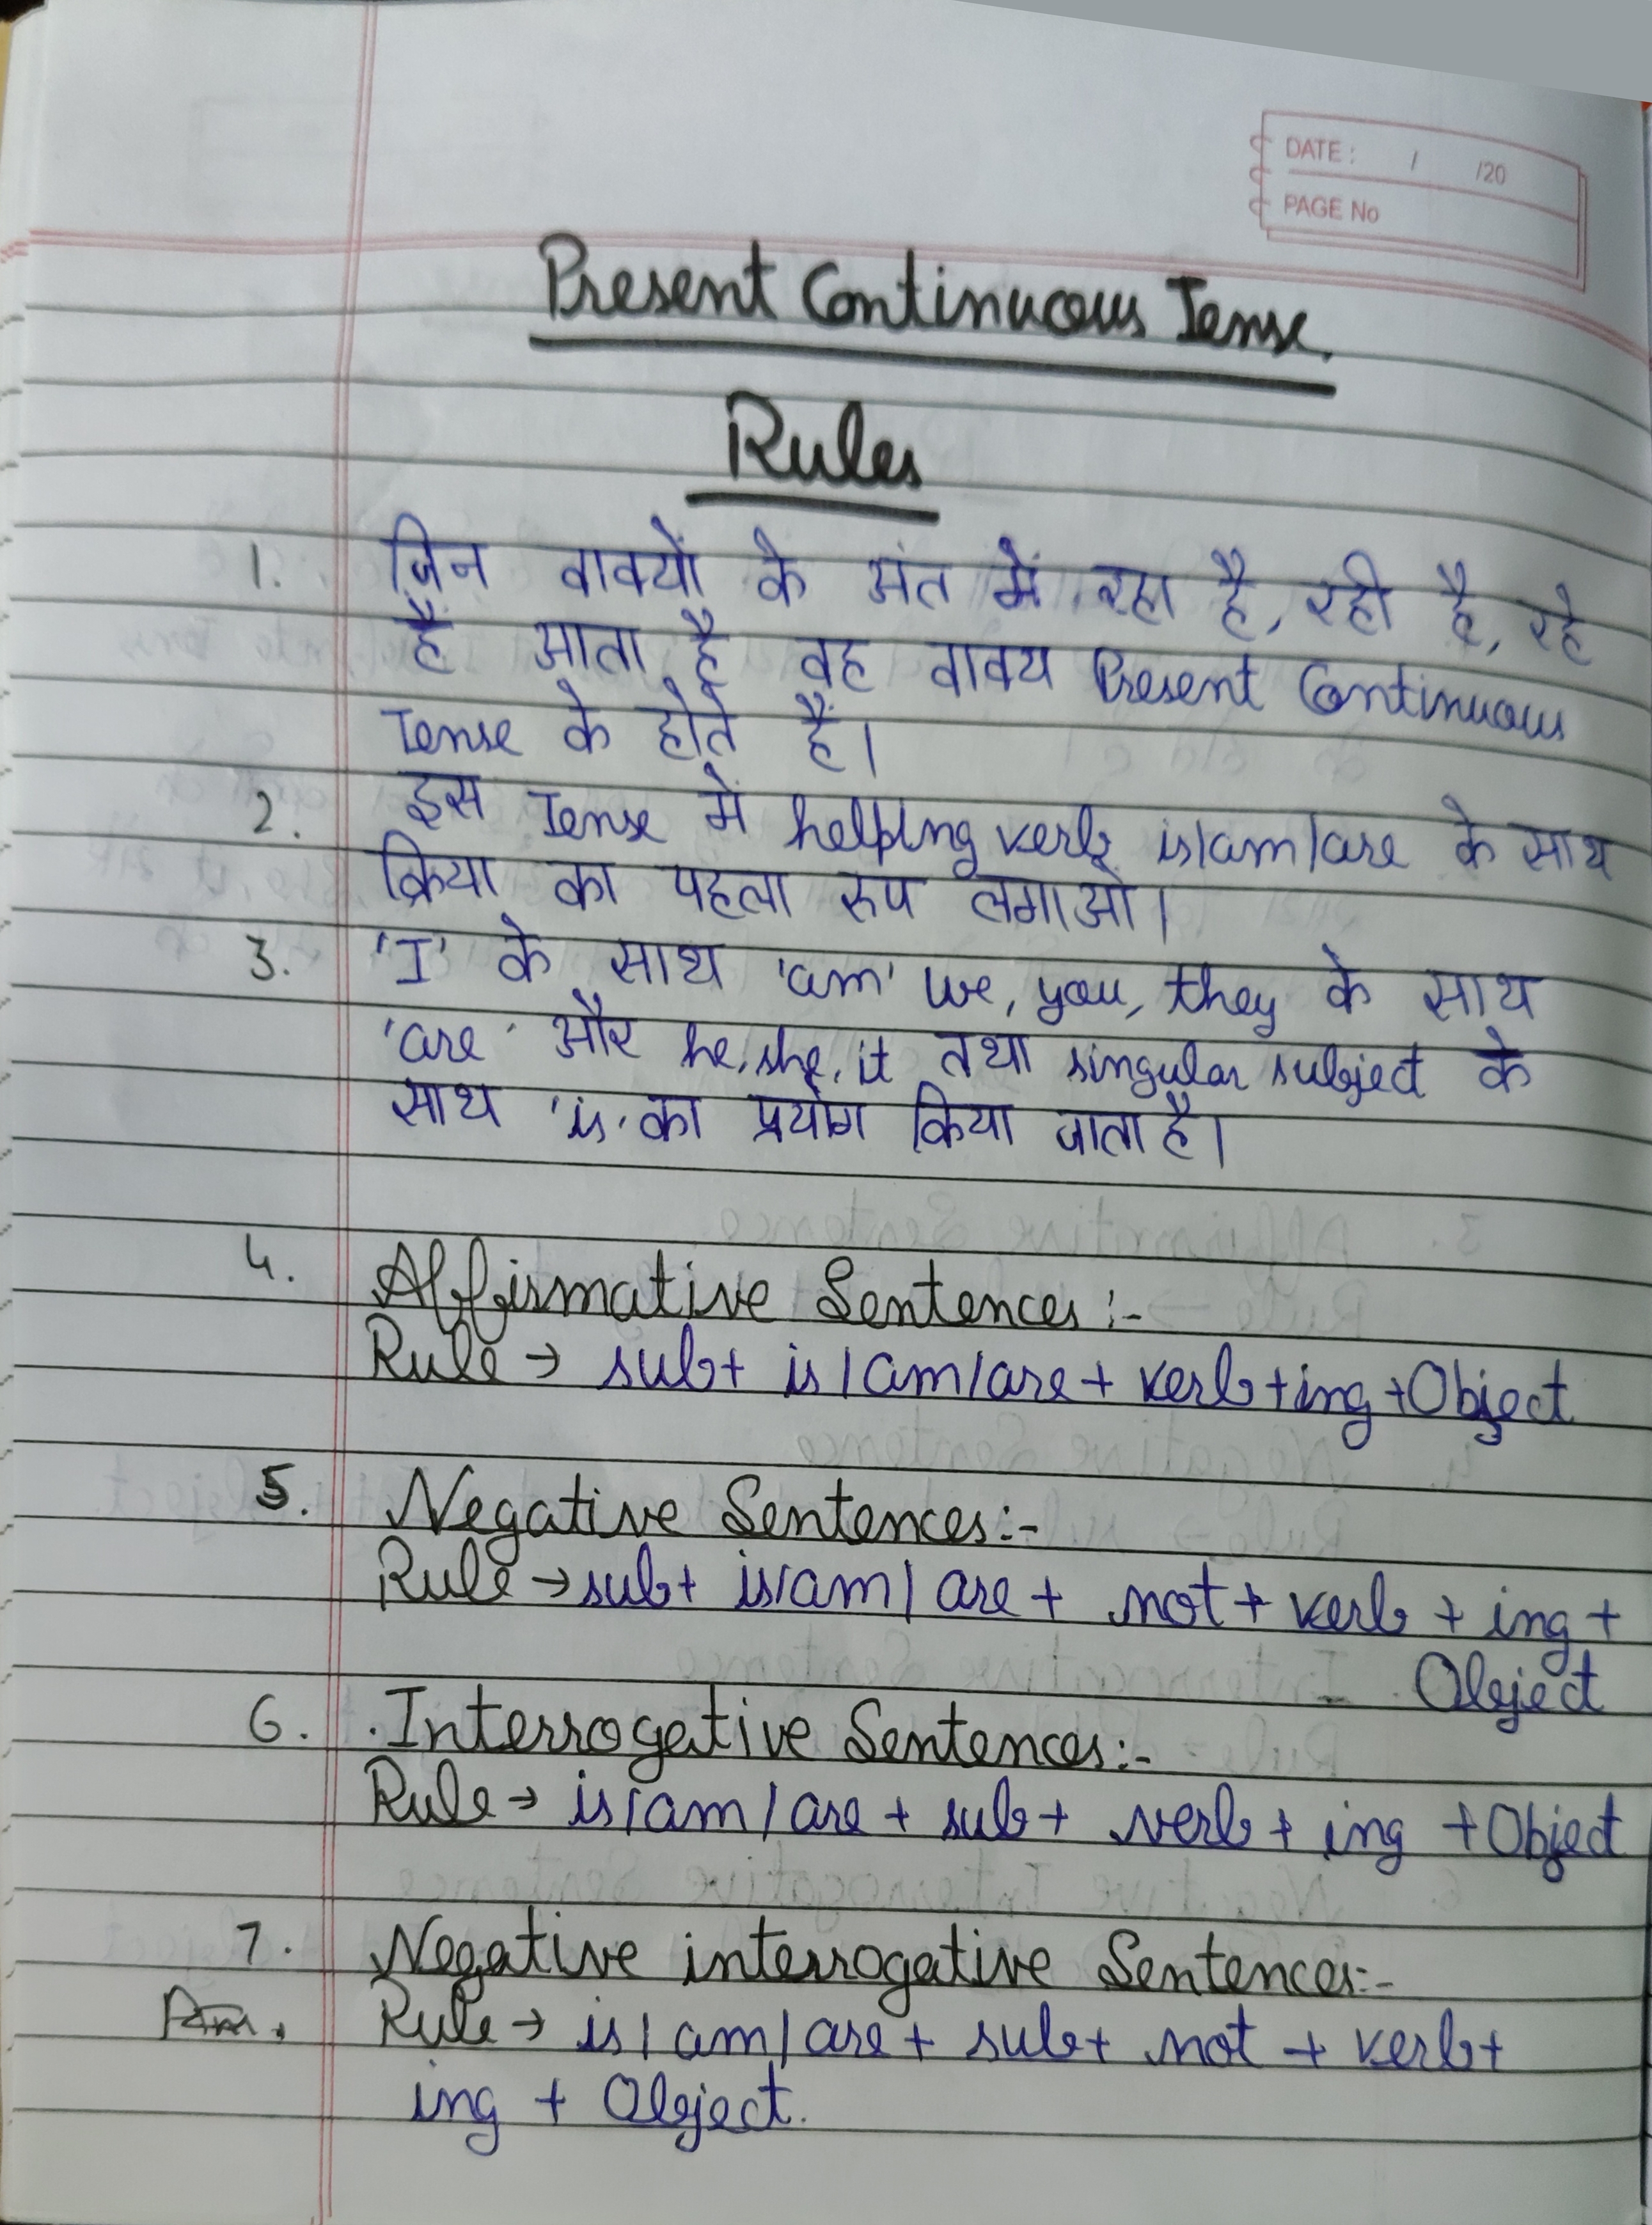 DATE: / /20
PAGE No
Present Continuous Tense.
Rules
1. जिन वाक्यों के अंत में रहा है, रही है, रहे
हैं आता है वह वाक्य Present Continuous
Tense के होते हैं।
2. इस Tense में helping verb is/am/are के साथ
क्रिया का पहला रूप लगाओ।
3. 'I' के साथ 'am' we, you, they के साथ
'are' और he, she, it तथा singular subject के
साथ 'is' का प्रयोग किया जाता है।
4. Affirmative Sentences :-
Rule → sub+ is/am/are + verb+ing +Object
5. Negative Sentences:-
Rule → sub+ is/am/are + not + verb + ing +
Object
6. Interrogative Sentences:-
Rule → is/am/are + sub+ verb + ing +Object
7. Negative interrogative Sentences:-
Rule → is/am/are + sub+ not + verb+
ing + Object.